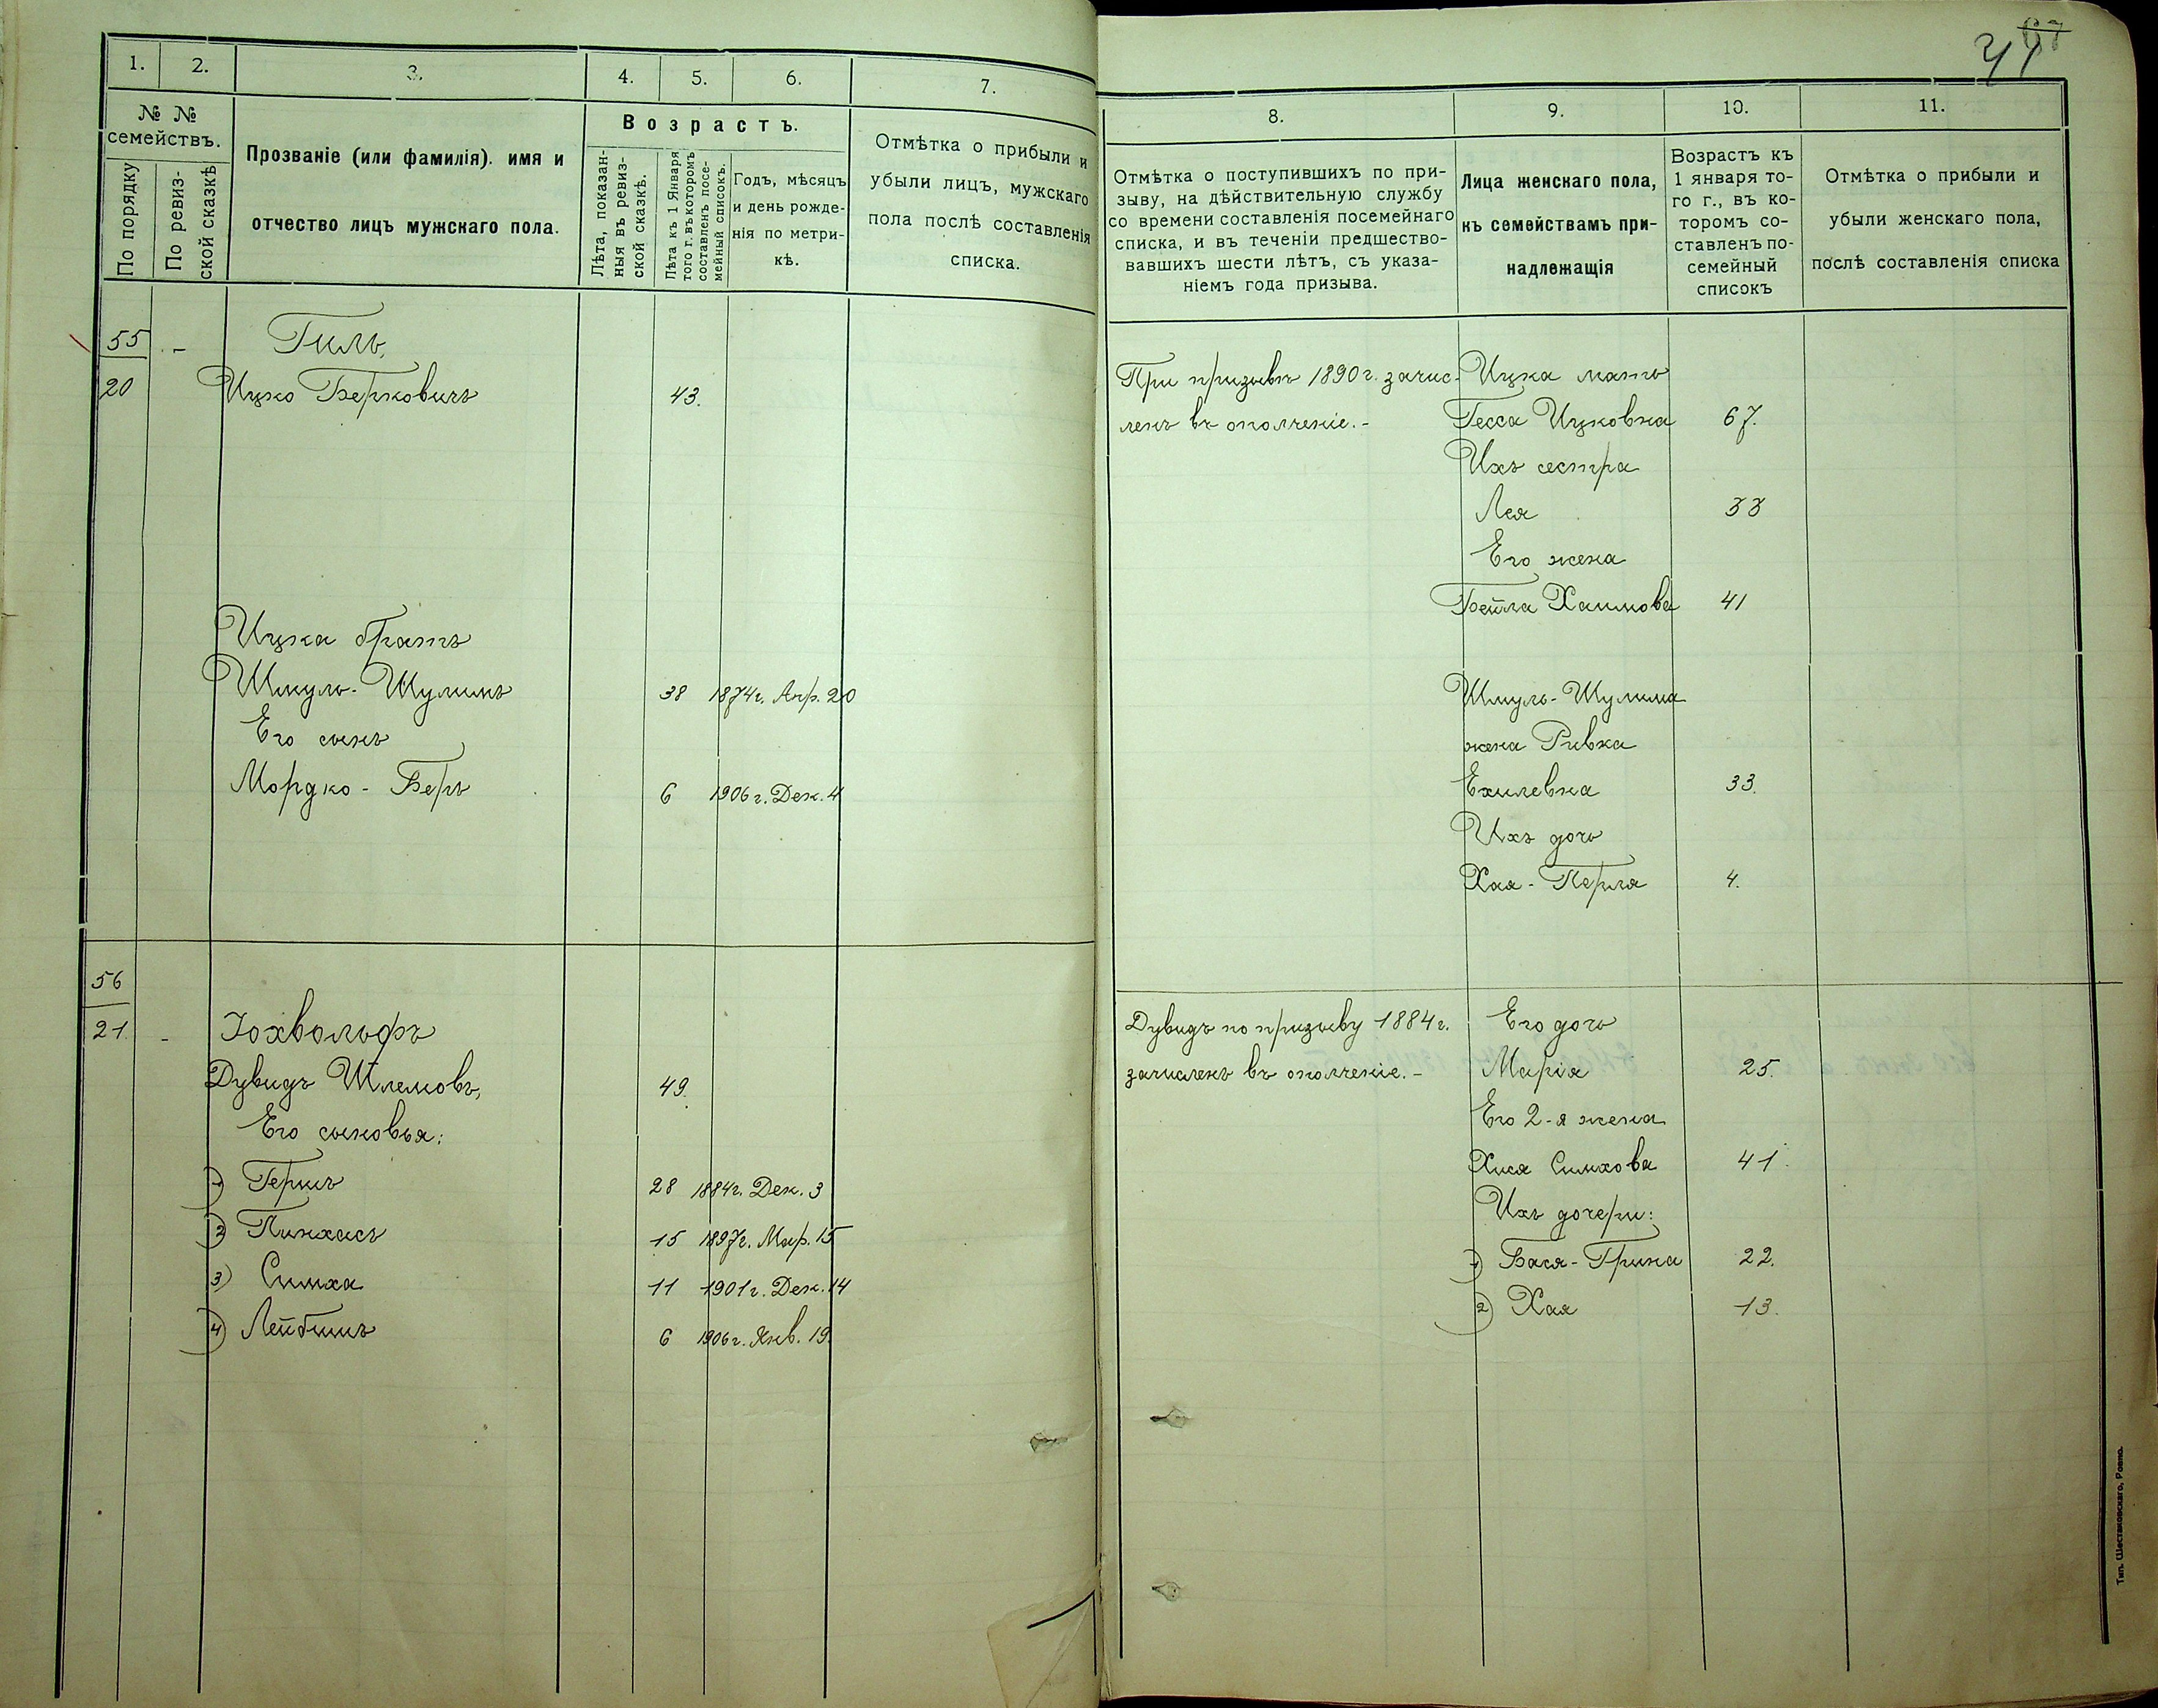 67
71
1.
2.
3.
4.
5.
6.
7.
№ №
семействъ.
По порядку
По ревиз-
ской сказкѣ
Прозваніе (или фамилія). имя и
отчество лицъ мужскаго пола.
Возрастъ.
Лѣта, показан-
ныя въ ревиз-
ской сказкѣ.
Лѣта къ 1 Января
того г. въ которомъ
составленъ посе-
мейный списокъ.
Годъ, мѣсяцъ
и день рожде-
нія по метри-
кѣ.
Отмѣтка о прибыли и
убыли лицъ, мужскаго
пола послѣ составленія
списка.
55 - Гиль,
20 Ицко Берковичъ 43.
Ицка братъ
Шмуль-Шулимъ 38 1874г. Апр. 20
Его сынъ
Мордко-Беръ 6 1906г. Дек. 4
56
21. - Іохвольфъ
Дувидъ Шлемовъ, 49.
Его сыновья:
1) Гершъ 28 1884г. Дек. 3
2) Пинхасъ 15 1897г. Мар. 15
3) Симха 11 1901г. Дек. 14
4) Лейбишъ 6 1906г. Янв. 19.
8.
9.
10.
11.
Отмѣтка о поступившихъ по при-
зыву, на дѣйствительную службу
со времени составленія посемейнаго
списка, и въ теченіи предшество-
вавшихъ шести лѣтъ, съ указа-
ніемъ года призыва.
Лица женскаго пола,
къ семействамъ при-
надлежащія
Возрастъ къ
1 января то-
го г., въ ко-
торомъ со-
ставленъ по-
семейный
списокъ
Отмѣтка о прибыли и
убыли женскаго пола,
послѣ составленія списка
При призывѣ 1890г. зачис- Ицка мать
ленъ въ ополченіе.- Гесса Ицковна 67.
Ихъ сестра
Лея 33
Его жена
Бейла Хаимова 41
Шмуль-Шулима
жена Ривка
Ехилевна 33.
Ихъ дочь
Хая-Перля 4.
Дувидъ по призыву 1884г. Его дочь
зачисленъ въ ополченіе.- Марія 25.
Его 2-я жена
Хися Симхова 41.
Ихъ дочери:
1) Бася-Грина 22.
2) Хая 13.
Тип. Шестаковскаго, Ровно.